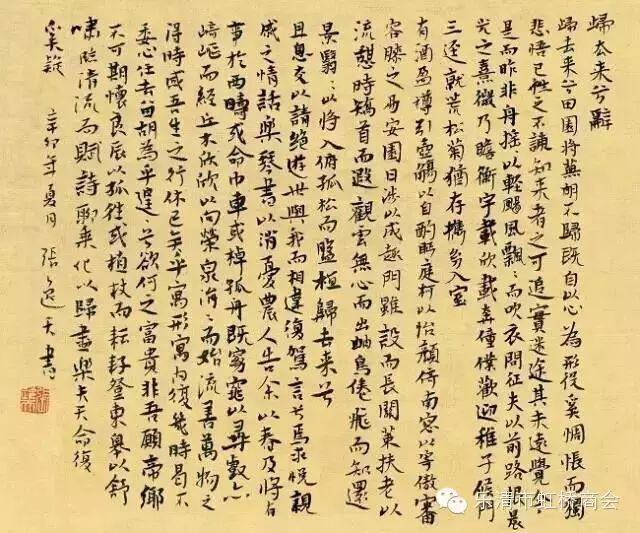 歸去来兮辭
歸去来兮田園將蕪胡不歸既自以心為形役奚惆悵而獨
悲悟已往之不諫知来者之可追實迷途其未遠覺今
是而昨非舟摇以輕颺風飄:而吹衣問征夫以前路恨晨
光之熹微乃瞻衡宇載欣載奔僮僕歡迎稚子候門
三逕就荒松菊猶存攜幼入室
有酒盈樽引壺觴以自酌眄庭柯以怡顏倚南窓以寄傲審
容膝之易安園日涉以成趣門雖設而長關策扶老以
流憩時矯首而遐觀雲無心而出岫鳥倦飛而知還
景翳:以將入撫孤松而盤桓歸去来兮
且息交以請絕遊世與我而相違復駕言兮焉求悅親
戚之情話樂琴書以消憂農人告余以春及將有
事於西疇或命巾車或棹孤舟既窈窕以尋壑亦
崎嶇而經丘木欣欣以向榮泉涓:而始流善萬物之
得時感吾生之行休已矣乎寓形寓内復幾時曷不
委心任去留胡為乎遑:兮欲何之富貴非吾願帝鄉
不可期懷良辰以孤往或植杖而耘耔登東皋以舒
嘯臨清流而賦詩聊乘化以歸盡樂夫天命復
奚疑 辛卯年夏月 張逸天書
乐清市虹桥商会